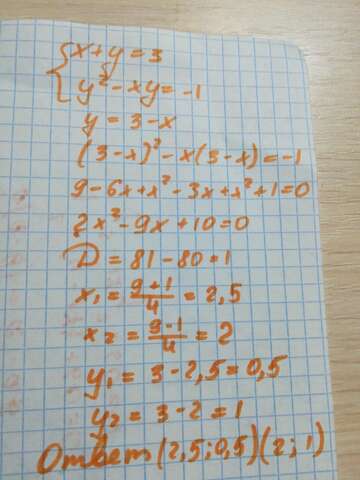 {x+y=3
y²-xy=-1
y=3-x
(3-x)²-x(3-x)=-1
9-6x+x²-3x+x²+1=0
2x²-9x+10=0
D=81-80=1
x₁=9+1/4=2,5
x₂=9-1/4=2
y₁=3-2,5=0,5
y₂=3-2=1
Ответ (2,5;0,5)(2;1)